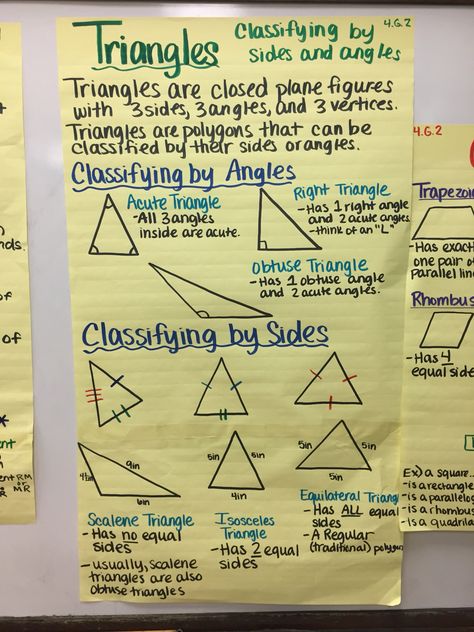 4.G.2
Triangles
Classifying by
sides and angles
Triangles are closed plane figures
with 3 sides, 3 angles, and 3 vertices.
Triangles are polygons that can be
classified by their sides or angles.
Classifying by Angles
Acute Triangle
- All 3 angles
inside are acute.
Right Triangle
- Has 1 right angle
and 2 acute angles
- think of an "L"
Obtuse Triangle
- Has 1 obtuse angle
and 2 acute angles.
Classifying by Sides
4½in
9in
6in
6in
6in
4in
5in
5in
5in
Scalene Triangle
- Has no equal
sides
- usually, scalene
triangles are also
obtuse triangles
Isosceles
Triangle
- Has 2 equal
sides
Equilateral Triang
- Has ALL equal
sides
- A Regular
(traditional) polygon
4.G.2
Trapezoi
- Has exact
one pair of
parallel lin
Rhombus
- Has 4
equal side
Ex) a square...
- is a rectangle
- is a parallelog
- is a rhombus
- is a quadrila
of
of
RM
or
MR